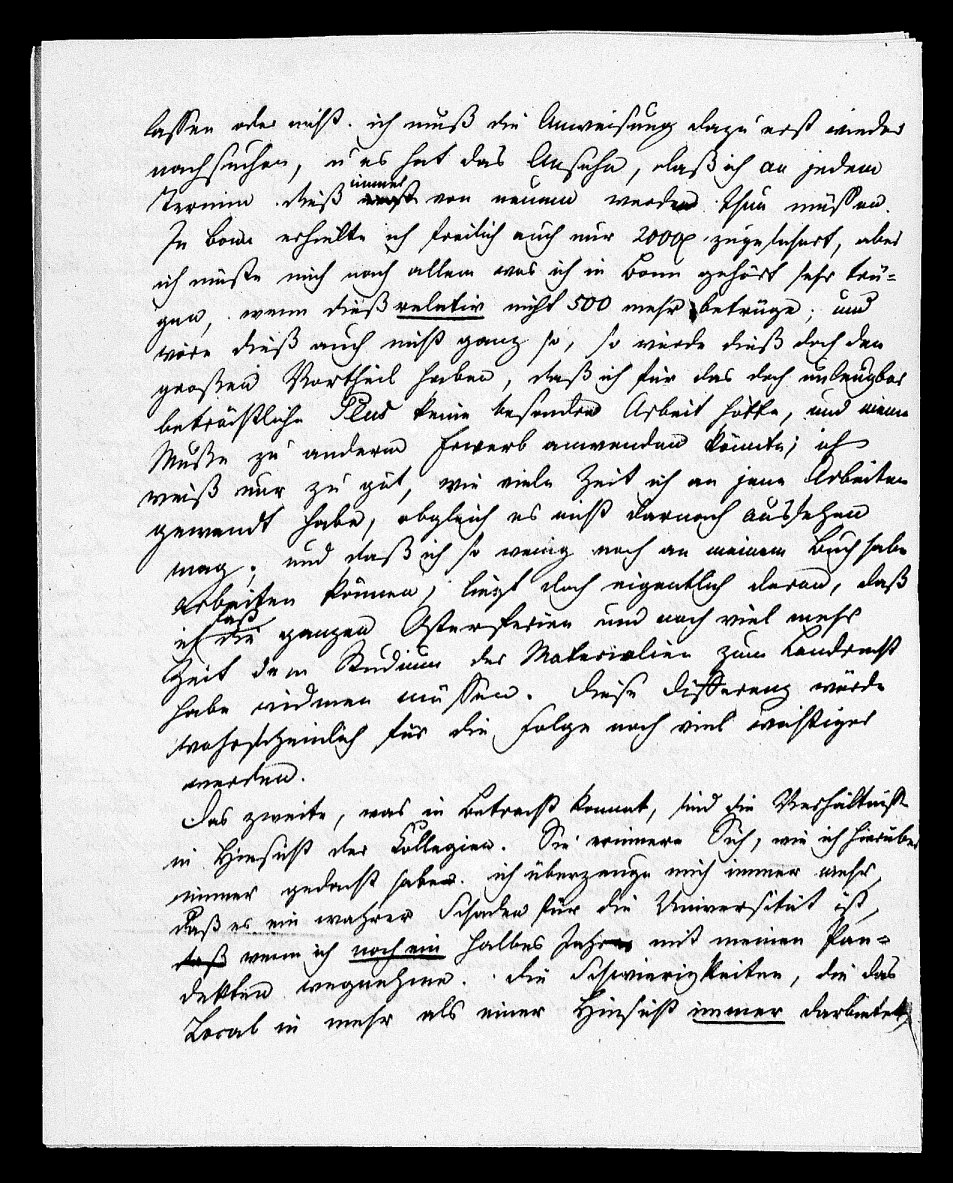 lassen oder nicht. ich muß die Anweisung dazu erst wieder
nachsuchen, u es hat das Ansehn, daß ich an jedem
Termin dieß immer von neuem werde thun müssen.
In Bonn erhielte ich freilich auch nur 2000 zugesichert, aber
ich müßte mich nach allem was ich in Bonn gehört sehr trü-
gen, wenn dieß relativ nicht 500 mehr betrüge; und
wäre dieß auch nicht ganz so, so würde dieß doch den
großen Vortheil haben, daß ich für das doch unleugbar
beträchtliche Plus keine besondre Arbeit hätte, und meine
Muße zu anderm Erwerb anwenden könnte; ich
weiß nur zu gut, wie viele Zeit ich an jene Arbeiten
gewendt habe, obgleich es nicht darnach aussehen
mag; und daß ich so wenig noch an meinem Buch habe
arbeiten können, liegt doch eigentlich daran, daß
ich fast die ganzen Osterferien und noch viel mehr
Zeit dem Studium der Materialien zum Landrecht
habe widmen müssen. Diese Differenz würde
wahrscheinlich für die Folge noch viel wichtiger
werden.
Das zweite, was in Betracht kommt, sind die Verhältnisse
in Hinsicht der Collegien. Sie erinnern Sich, wie ich hierüber
immer gedacht habe. ich überzeuge mich immer mehr,
daß es ein wahrer Schaden für die Universität ist,
daß wenn ich noch ein halbes Jahr mit meinen Pan-
dekten wegnehme. Die Schwierigkeiten, die das
Local in mehr als einer Hinsicht immer darbietet,